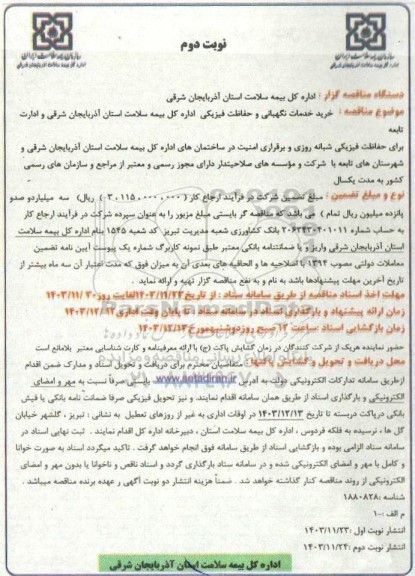 نوبت دوم
دستگاه مناقصه گزار : اداره کل بیمه سلامت استان آذربایجان شرقی
موضوع مناقصه : خرید خدمات نگهبانی و حفاظت فیزیکی اداره کل بیمه سلامت استان آذربایجان شرقی و ادارات تابعه
برای حفاظت فیزیکی شبانه روزی و برقراری امنیت در ساختمان های اداره کل بیمه سلامت استان آذربایجان شرقی و
شهرستان های تابعه با شرکت و مؤسسه های صلاحیتدار دارای مجوز رسمی و معتبر از مراجع و سازمان های رسمی
کشور به مدت یکسال
نوع و مبلغ تضمین : مبلغ تضمین شرکت در فرآیند ارجاع کار ( ۳،۱۱۵،۰۰۰،۰۰۰ ریال) سه میلیاردو صدو
پانزده میلیون ریال تمام ) می باشد که مناقصه گر بایستی مبلغ مزبور را به عنوان سپرده شرکت در فرآیند ارجاع کار
به حساب شماره بانک کشاورزی شعبه مدیریت تبریز کد شعبه ۱۵۴۵ بنام اداره کل بیمه سلامت
استان آذربایجان شرقی واریز و یا ضمانتنامه بانکی معتبر طبق نمونه کاربرگ شماره یک پیوست آیین نامه تضمین
معاملات دولتی مصوب ۱۳۹۴ با اصلاحیه ها و الحاقیه های بعدی آن به میزان فوق که مدت اعتبار آن سه ماه بیشتر از
تاریخ آخرین مهلت پیشنهادها باشد به نام و به نفع مناقصه گزار تهیه و ارائه نماید .
مهلت اخذ اسناد مناقصه از طریق سامانه ستاد : از تاریخ ۱۴۰۳/۱۱/۲۳ لغایت روز ۱۴۰۳/۱۱/۳۰
زمان ارائه پیشنهاد و بارگذاری اسناد در سامانه ستاد : تا پایان وقت اداری ۱۴۰۳/۱۲/۱۳
زمان بازگشایی اسناد :ساعت ۱۲ صبح روز دوشنبه مورخ
حضور نماینده هریک از شرکت کنندگان در زمان گشایش پاکت (ج) با ارائه معرفینامه و کارت شناسایی معتبر بلامانع است
محل دریافت و تحویل و گشایش پاکتها : متقاضیان محترم برای دریافت و تحویل اسناد و مدارک ضمن اقدام
ازطریق سامانه تدارکات الکترونیکی دولت به آدرس www.setadiran.ir بایستی صرفاً نسبت به مهر و امضای
الکترونیکی و بارگذاری اسناد از طریق همان سامانه اقدام نمایند. و نیز تحویل فیزیکی صرفا ضمانت نامه بانکی یا فیش
بانکی درپاکت دربسته تا تاریخ ۱۴۰۳/۱۲/۱۳ در اوقات اداری به غیر از روزهای تعطیل به نشانی : تبریز ، گلشهر خیابان
گل ها ، نرسیده به فلکه فردوس ، اداره کل بیمه سلامت استان ، دبیرخانه اداره کل اقدام نمایند . ثبت نهایی اسناد در
سامانه ستاد الزامی بوده و بازگشایی اسناد از طریق سامانه فوق انجام خواهد گرفت . تاکید میگردد اسناد به صورت خوانا
و کامل با مهر و امضای الکترونیکی شده و در سامانه ستاد بارگذاری گردد و اسناد ناقص و ناخوانا یا بدون مهر و امضای
الکترونیکی از روند مناقصه کنار گذاشته خواهد شد . ضمناً هزینه انتشار دو نوبت آگهی بر عهده برنده مناقصه میباشد .
شناسه : ۱۸۸۰۸۲۸
م الف : ۱۰
انتشار نوبت اول :۱۴۰۳/۱۱/۲۳
انتشار نوبت دوم :۱۴۰۳/۱۱/۲۴
اداره کل بیمه سلامت استان آذربایجان شرقی